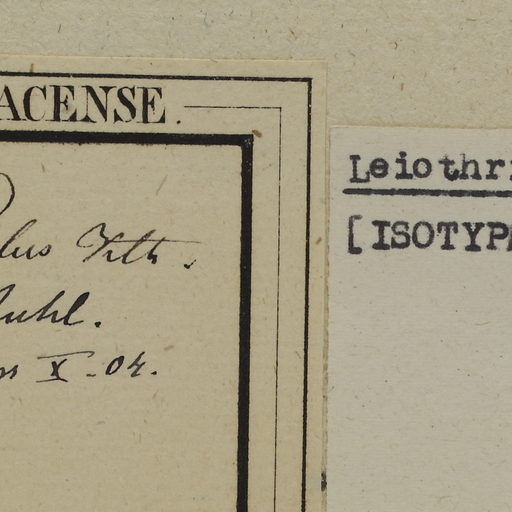 ACENSE
lus Vitt.
Ruhl.
X-04.
Leiothri
[ISOTYP